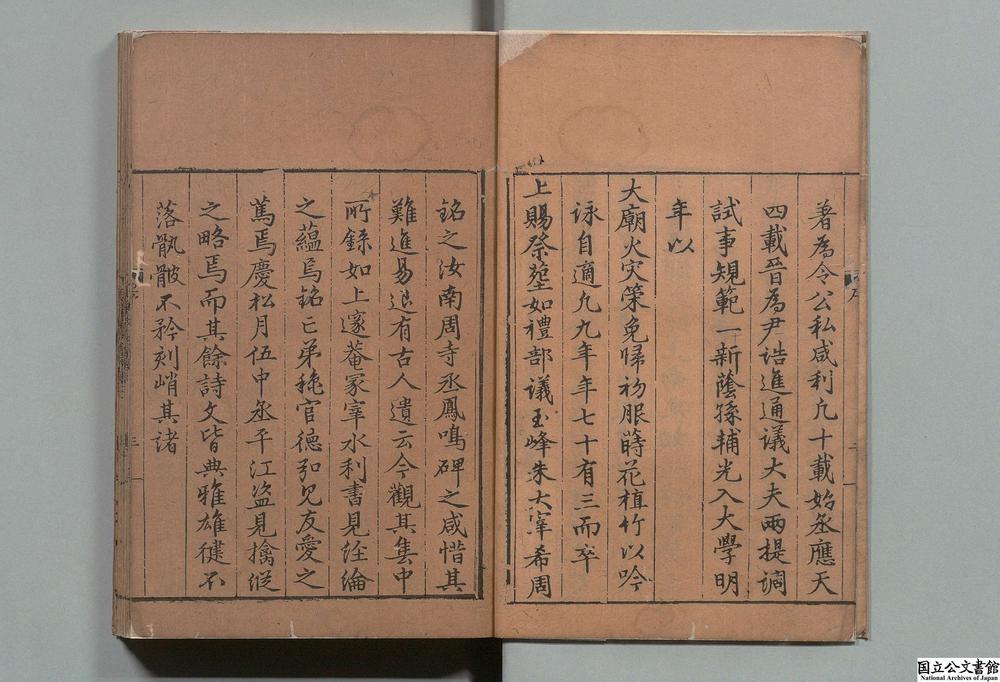 著為令公私咸利凢十載始丞應天
四載晉為尹誥進通議大夫兩提調
試事規範一新蔭孫輔光入大學明
年以
大廟火灾策免歸初服蒔花植竹以吟
咏自適凢九年年七十有三而卒
上賜祭塟如禮部議玉峰朱大宰希周
銘之汝南周寺丞鳳鳴碑之咸惜其
難進易退有古人遺云今觀其集中
所錄如上邃菴冢宰水利書見經綸
之蘊焉銘亡弟稅官德弘見友愛之
篤焉慶松月伍中丞平江盜見擒縱
之略焉而其餘詩文皆典雅雄健不
落骫骳不矜刻峭其諸
国立公文書館
National Archives of Japan